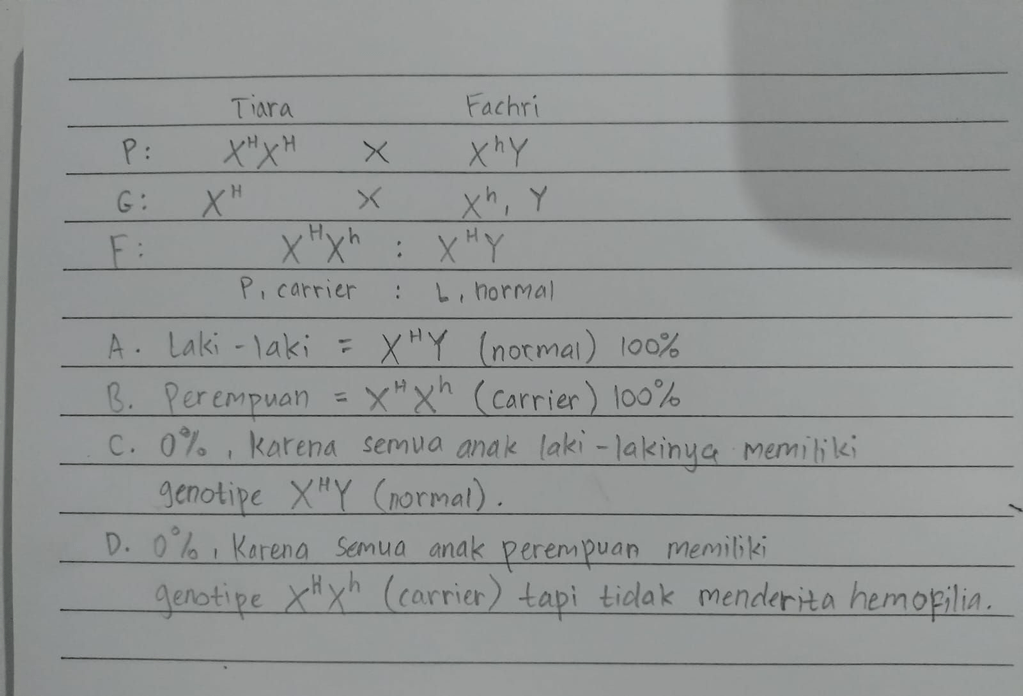 Tiara Fachri
P: XᴴXᴴ × XʰY
G: Xᴴ × Xʰ, Y
F: XᴴXʰ : XᴴY
P, carrier : L, normal
A. Laki-laki = XᴴY (normal) 100%
B. Perempuan = XᴴXʰ (carrier) 100%
C. 0%, karena semua anak laki-lakinya memiliki
genotipe XᴴY (normal).
D. 0%, Karena semua anak perempuan memiliki
genotipe XᴴXʰ (carrier) tapi tidak menderita hemofilia.